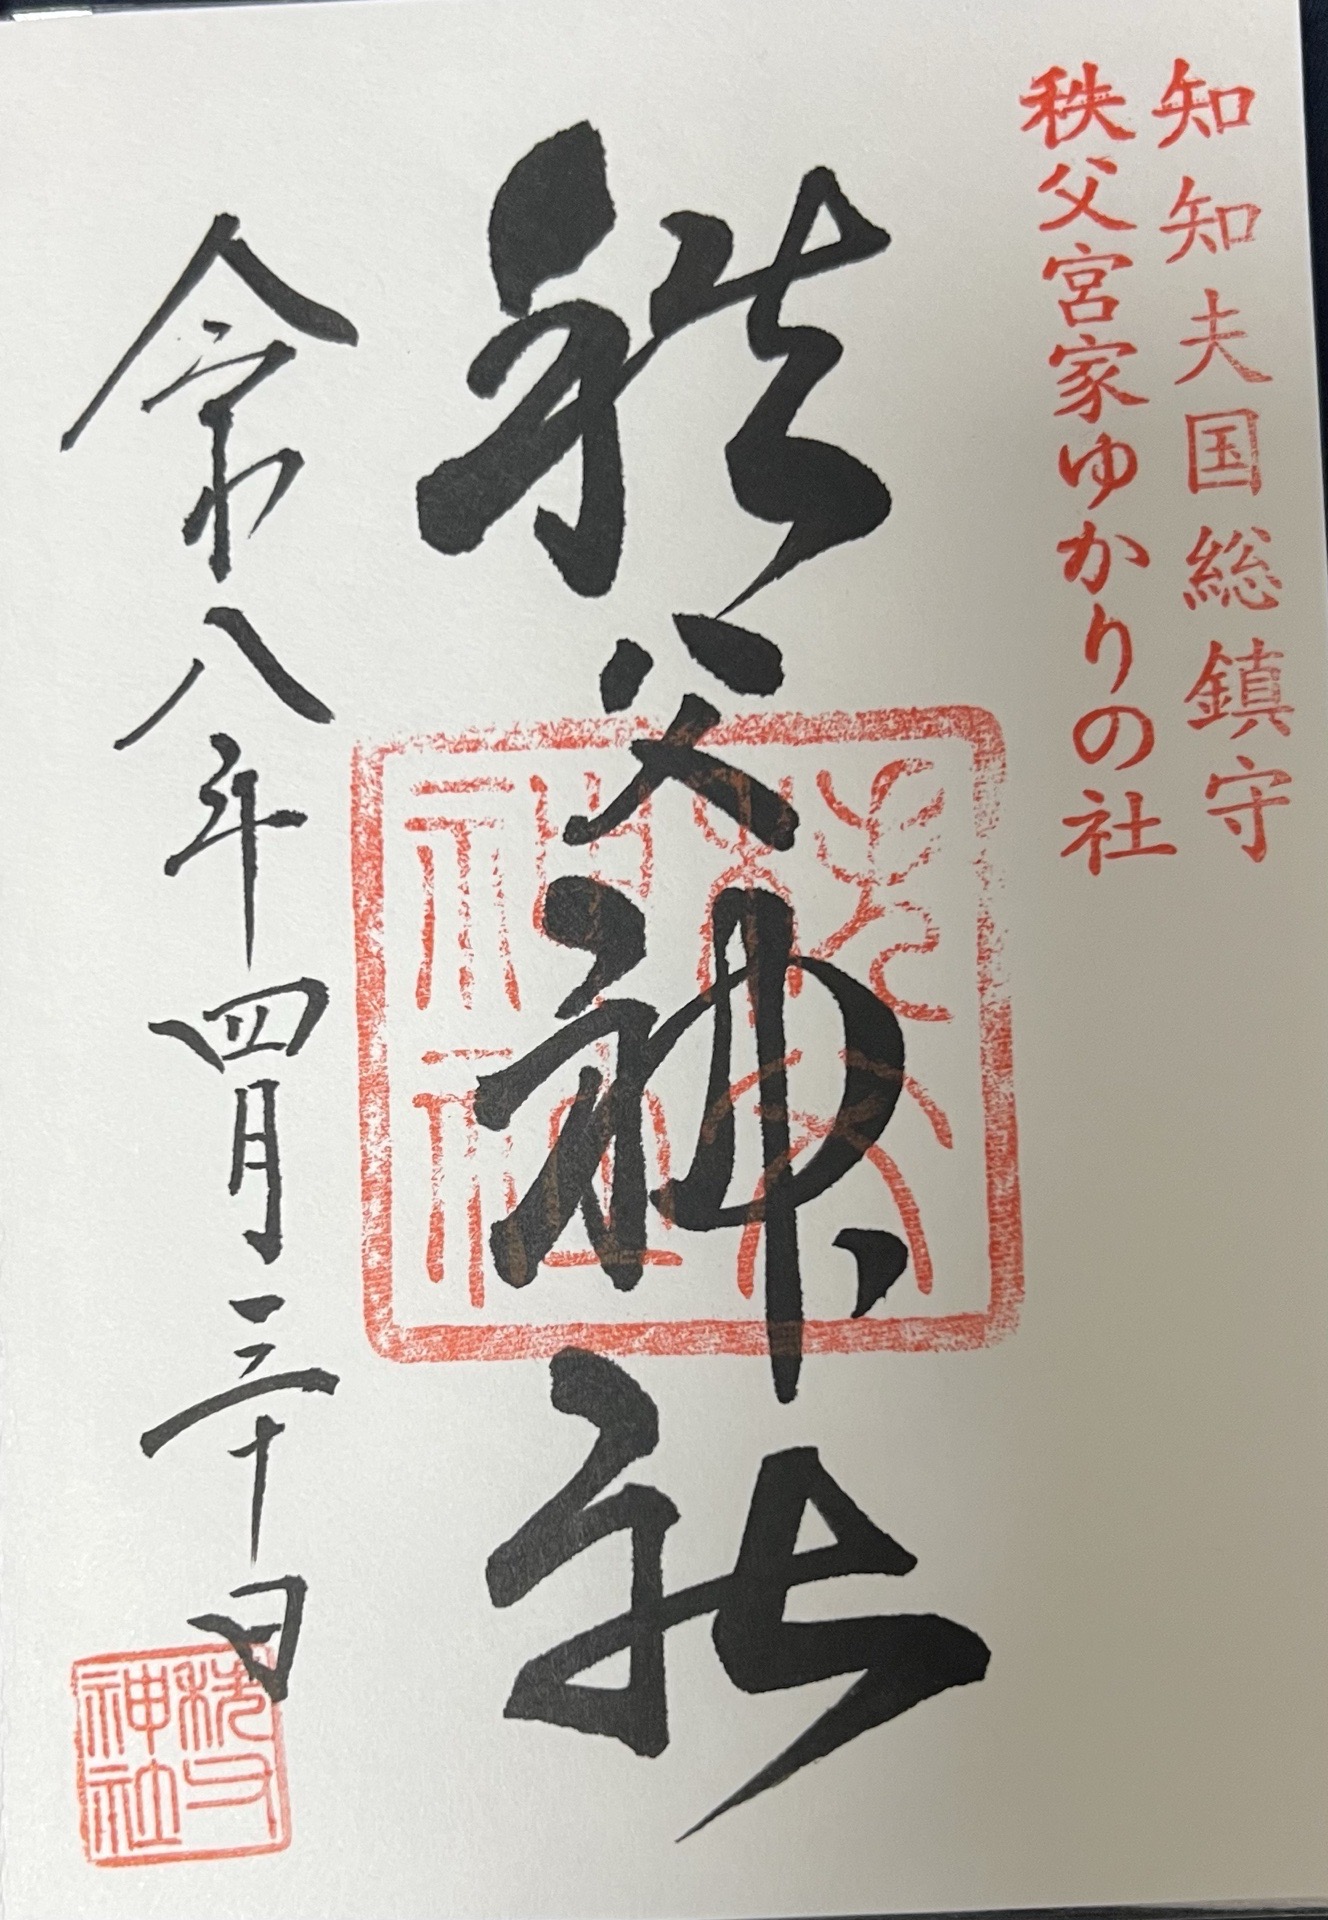 知知夫国総鎮守
秩父宮家ゆかりの社
秩父神社
秩父神社
令和八年四月三十日
秩父神社